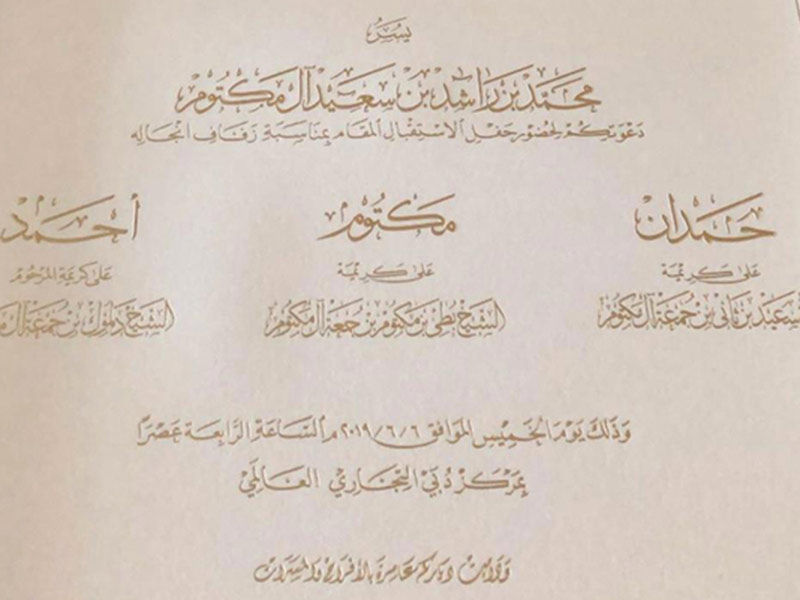 يسر
محمد بن راشد بن سعيد آل مكتوم
دعوتكم لحضور حفل الاستقبال المقام بمناسبة زفاف انجاله
حمدان مكتوم أحمد
على كريمة على كريمة على كريمة المرحوم
سعيد بن ثاني بن جمعة آل مكتوم الشيخ بطي بن مكتوم بن جمعة آل مكتوم الشيخ دلموك بن جمعة آل
وذلك يوم الخميس الموافق ٢٠١٩/٦/٦م الساعة الرابعة عصراً
بمركز دبي التجاري العالمي
ودامت دياركم عامرة بالأفراح والمسرات